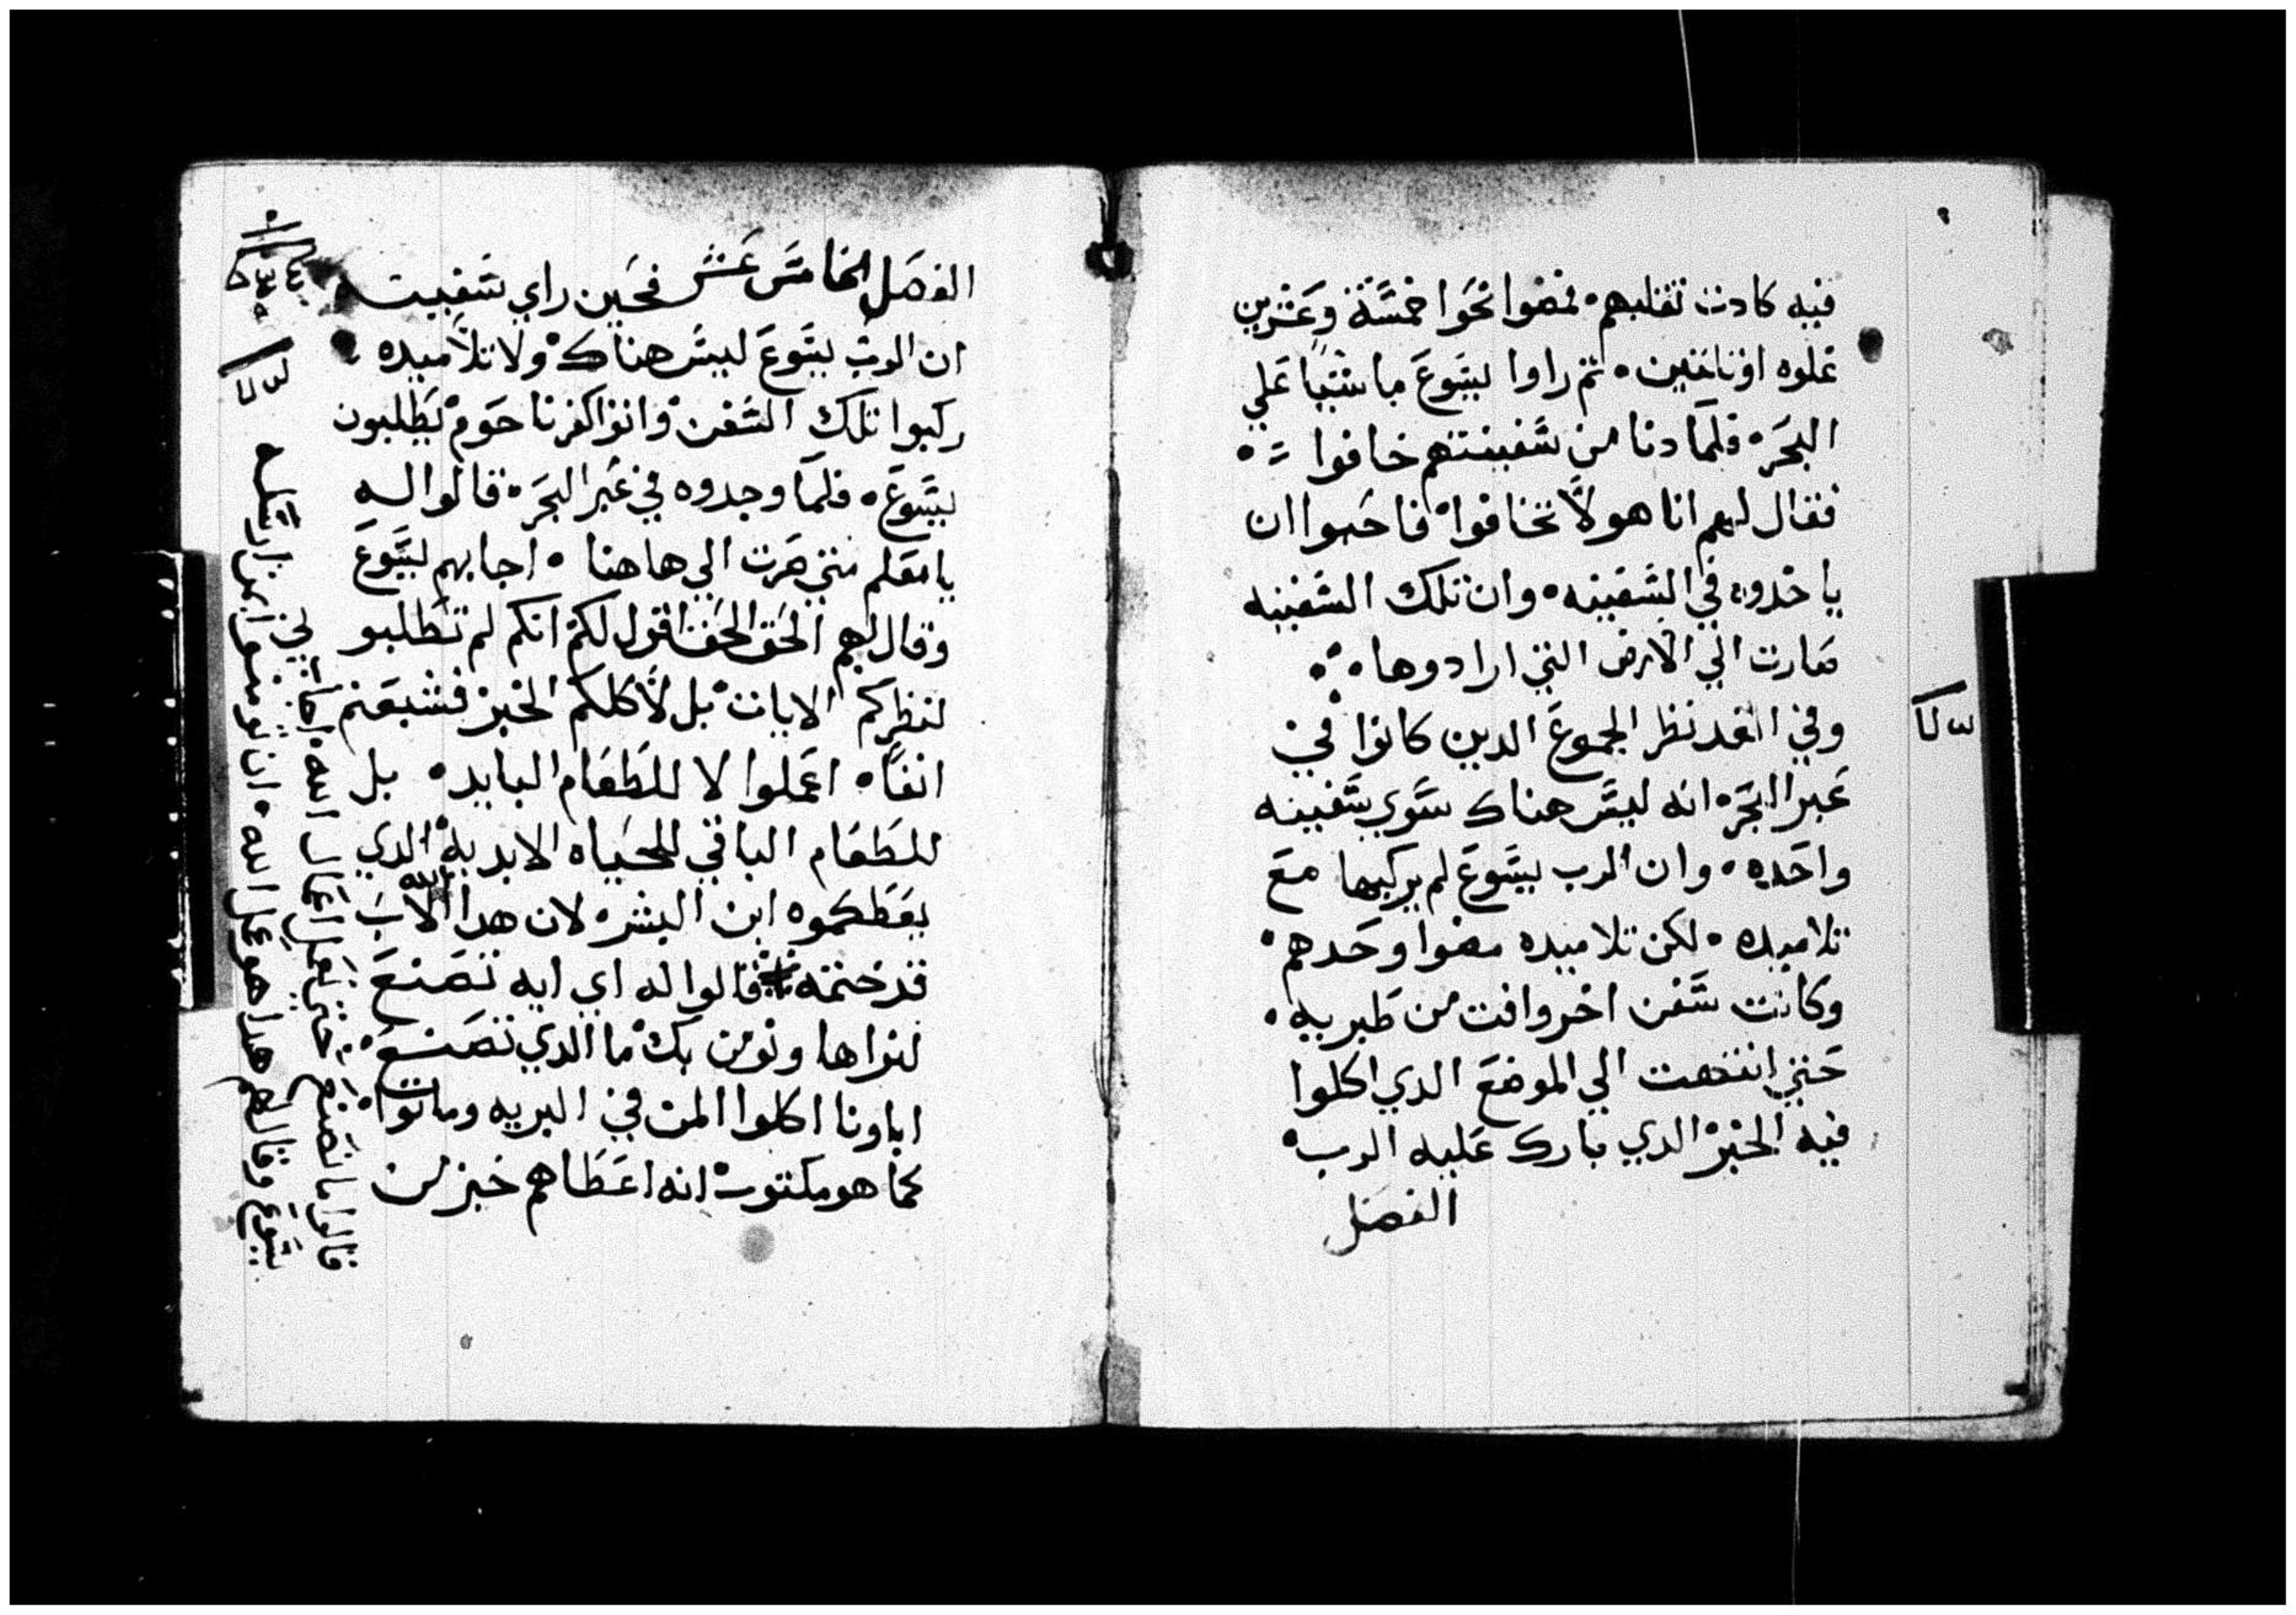 فيه كادت تقلبهم۰ فمضوا نحوا خمسة وعشرين
غلوه اوثلثين۰ ثم راوا يسوع ماشيا علي
البحر۰ فلما دنا من سفينتهم خافوا
فقال لهم انا هو لا تخافوا فاحبوا ان
ياخدوه في السفينه۰ وان تلك السفينه
صارت الي الارض التي ارادوها۰
وفي الغد نظر الجموع الدين كانوا في
عبر البحر۰ انه ليس هناك سوي سفينه
واحده۰ وان الرب يسوع لم يركبها مع
تلاميده۰ لكن تلاميده مضوا وحدهم۰
وكانت سفن اخر وافت من طبريه۰
حتي انتهت الي الموضع الدي اكلوا
فيه الخبز الدي بارك عليه الرب
الفصل
الفصل الخامس عشر فحين راي
ان الرب يسوع ليس هناك ولا تلاميده
ركبوا تلك السفن واتوا كفرناحوم يطلبون
يسوع۰ فلما وجدوه في عبر البحر۰ قالوا له
يا معلم متي صرت الي هاهنا۰ اجابهم يسوع
وقال لهم الحق الحق اقول لكم انكم لم تطلبو
لنظركم الايات بل لاكلكم الخبز فشبعتم
انفا۰ اعملوا لا للطعام البايد۰ بل
للطعام الباقي للحياه الابديه الدي
يعطكموه ابن البشر۰ لان هدا الله الاب
قد ختمه قالوا له اي ايه تصنع
لنراها ونومن بك ما الدي تصنع
اباونا اكلوا المن في البريه وماتوا
كما هو مكتوب انه اعطاهم خبز من
قالوا ما نصنع حتي نعمل اعمال الله۰ اجاب
يسوع وقال لهم هدا هو عمل الله۰ ان تومنوا بمن ارسله